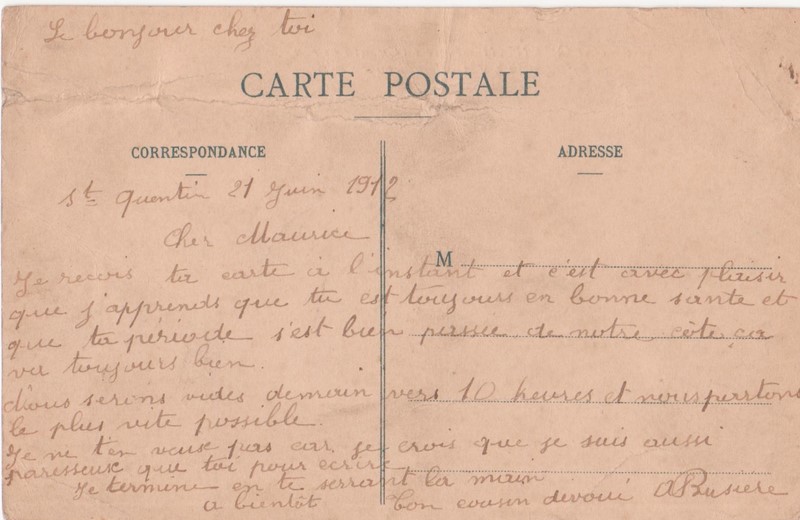 Le bonjour chez toi
CARTE POSTALE
CORRESPONDANCE
ADRESSE
St Quentin 21 Juin 191
Cher Maurice
M
Je recois ta carte à l'instant et c'est avec plaisir
que j'apprends que tu est toujours en bonne sante et
que ta période s'est bien passée de notre côte ça
va toujours bien.
Nous serons vides demain vers 10 heures et nous partons
le plus vite possible.
Je ne t'en veux pas car je crois que je suis aussi
paresseux que toi pour ecrire
Je termine en te serrant la main
a bientôt ton cousin dévoué